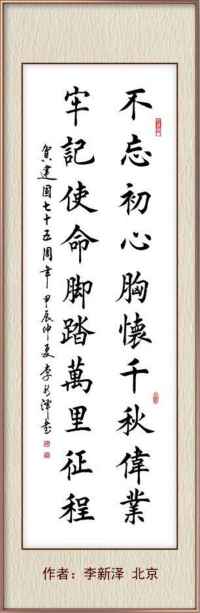 不忘初心胸懷千秋偉業
牢記使命脚踏萬里征程
賀建国七十五周年甲辰仲夏李新泽书
作者：李新泽 北京